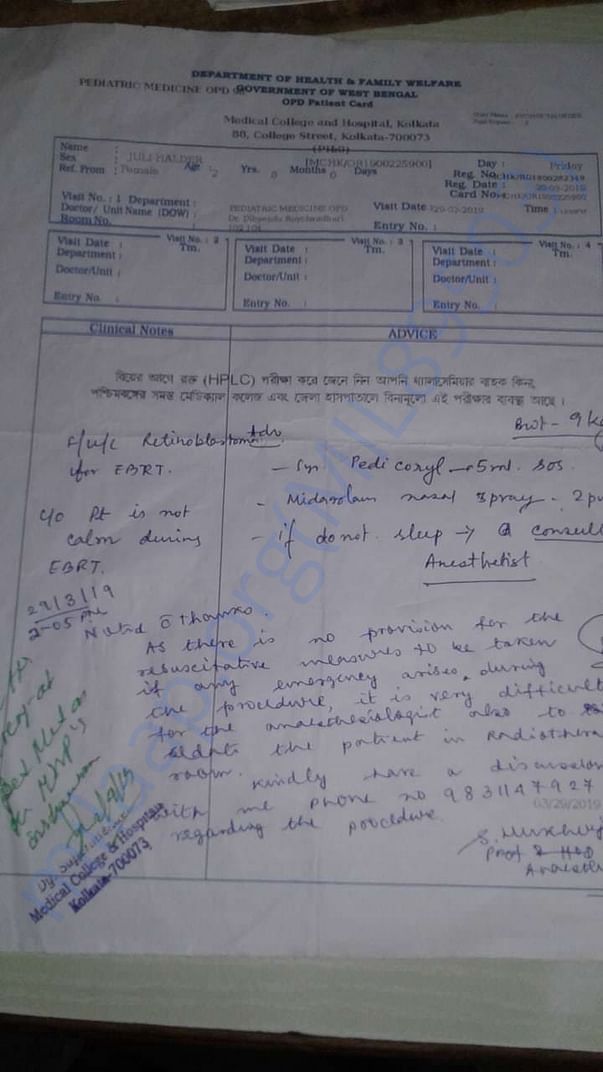 DEPARTMENT OF HEALTH & FAMILY WELFARE
PEDIATRIC MEDICINE OPD GOVERNMENT OF WEST BENGAL
OPD Patient Card
Medical College and Hospital, Kolkata
88, College Street, Kolkata-700073
Name : JULI HALDER
Sex : Female Age : 2 Yrs. 0 Months 0 Days
Ref. From :
Day : Friday
Reg. No.
Reg. Date :
Card No.
Visit No. : 1 Department : PEDIATRIC MEDICINE OPD
Visit Date : 29-03-2019 Time :
Doctor/ Unit Name (DOW) :
Room No. 102 104
Entry No. :
Visit Date : Visit No. : 2
Tm.
Department :
Doctor/Unit :
Entry No. :
Visit Date : Visit No. : 3
Tm.
Department :
Doctor/Unit :
Entry No. :
Visit Date : Visit No. : 4
Tm.
Department :
Doctor/Unit :
Entry No. :
Clinical Notes
ADVICE
বিয়ের আগে রক্ত (HPLC) পরীক্ষা করে জেনে নিন আপনি থ্যালাসেমিয়ার বাহক কিনা,
পশ্চিমবঙ্গের সমস্ত মেডিক্যাল কলেজ এবং জেলা হাসপাতালে বিনামূল্যে এই পরীক্ষার ব্যবস্থা আছে।
Bwt - 9 kg
F/u/c Retinoblastoma
for EBRT.
c/o Pt is not
calm during
EBRT.
Adv
- Syr. Pedicoryl - 5ml. SOS
- Midazolam nasal spray - 2
- if do not sleep → consult
Anesthetist
29/3/19
2-05 PM
Noted c Thanks.
As there is no provision for the
resuscitative measures to be taken
if any emergency arises during
the procedure, it is very difficult
for the anaesthesiologist also to
sedate the patient in Radiothera
room.
Kindly have a discussion
with me phone no 9831147927
regarding the procedure.
03/29/2019
S. Mukherj
Prof & HOD
Anaesth
Dy. Superintendent
Medical College & Hospital
Kolkata-700073